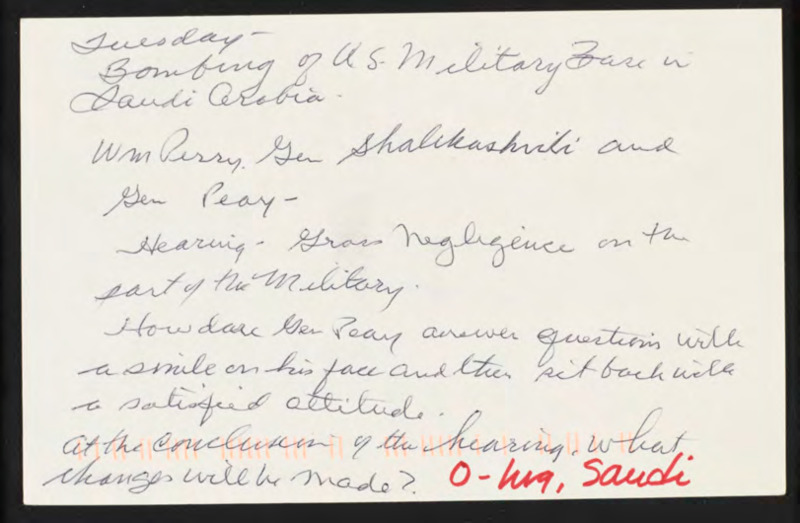 Tuesday-
Bombing of U.S. Military Base in
Saudi Arabia.
Wm Perry, Gen Shalikashvili and
Gen Peay-
Hearing - Gross Negligence on the
part of the Military.
How dare Gen Peay answer questions with
a smile on his face and then sit back with
a satisfied attitude.
at the conclusion of the hearing. What
changes will be made?
O-hrg, Saudi